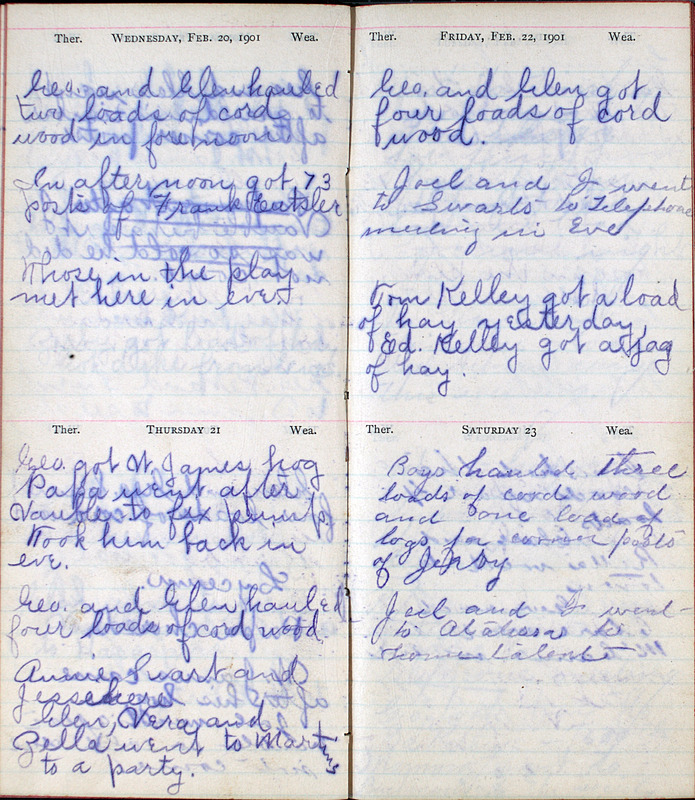 Ther. WEDNESDAY, FEB. 20, 1901 Wea.
Geo. and Glen hauled
two loads of cord
wood in forenoon
In afternoon got 73
posts of Frank
Those in the play
met here in eve.
Ther. THURSDAY 21 Wea.
Geo. got W. James hog
Papa went after
to fix pump.
Took him back in
eve.
Geo. and Glen hauled
four loads of cord wood
Swart and
Jesse here
Glen, Vera and
Zella went to Martins
to a party.
Ther. FRIDAY, FEB. 22, 1901 Wea.
Geo. and Glen got
four loads of cord
wood.
Joel and I went
to Swarts to Telephone
meeting in Eve
Tom Kelley got a load
of hay yesterday,
Ed. Kelley got a jag
of hay.
Ther. SATURDAY 23 Wea.
Boys hauled three
loads of cord wood
and one load of
logs for corner posts
of
Joel and I went
to to
home talent